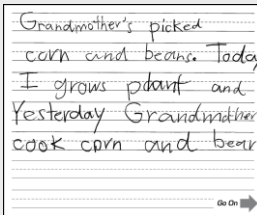 Grandmother's picked
corn and beans. Today
I grows plant and
Yesterday Grandmother
cook corn and bean
Go On